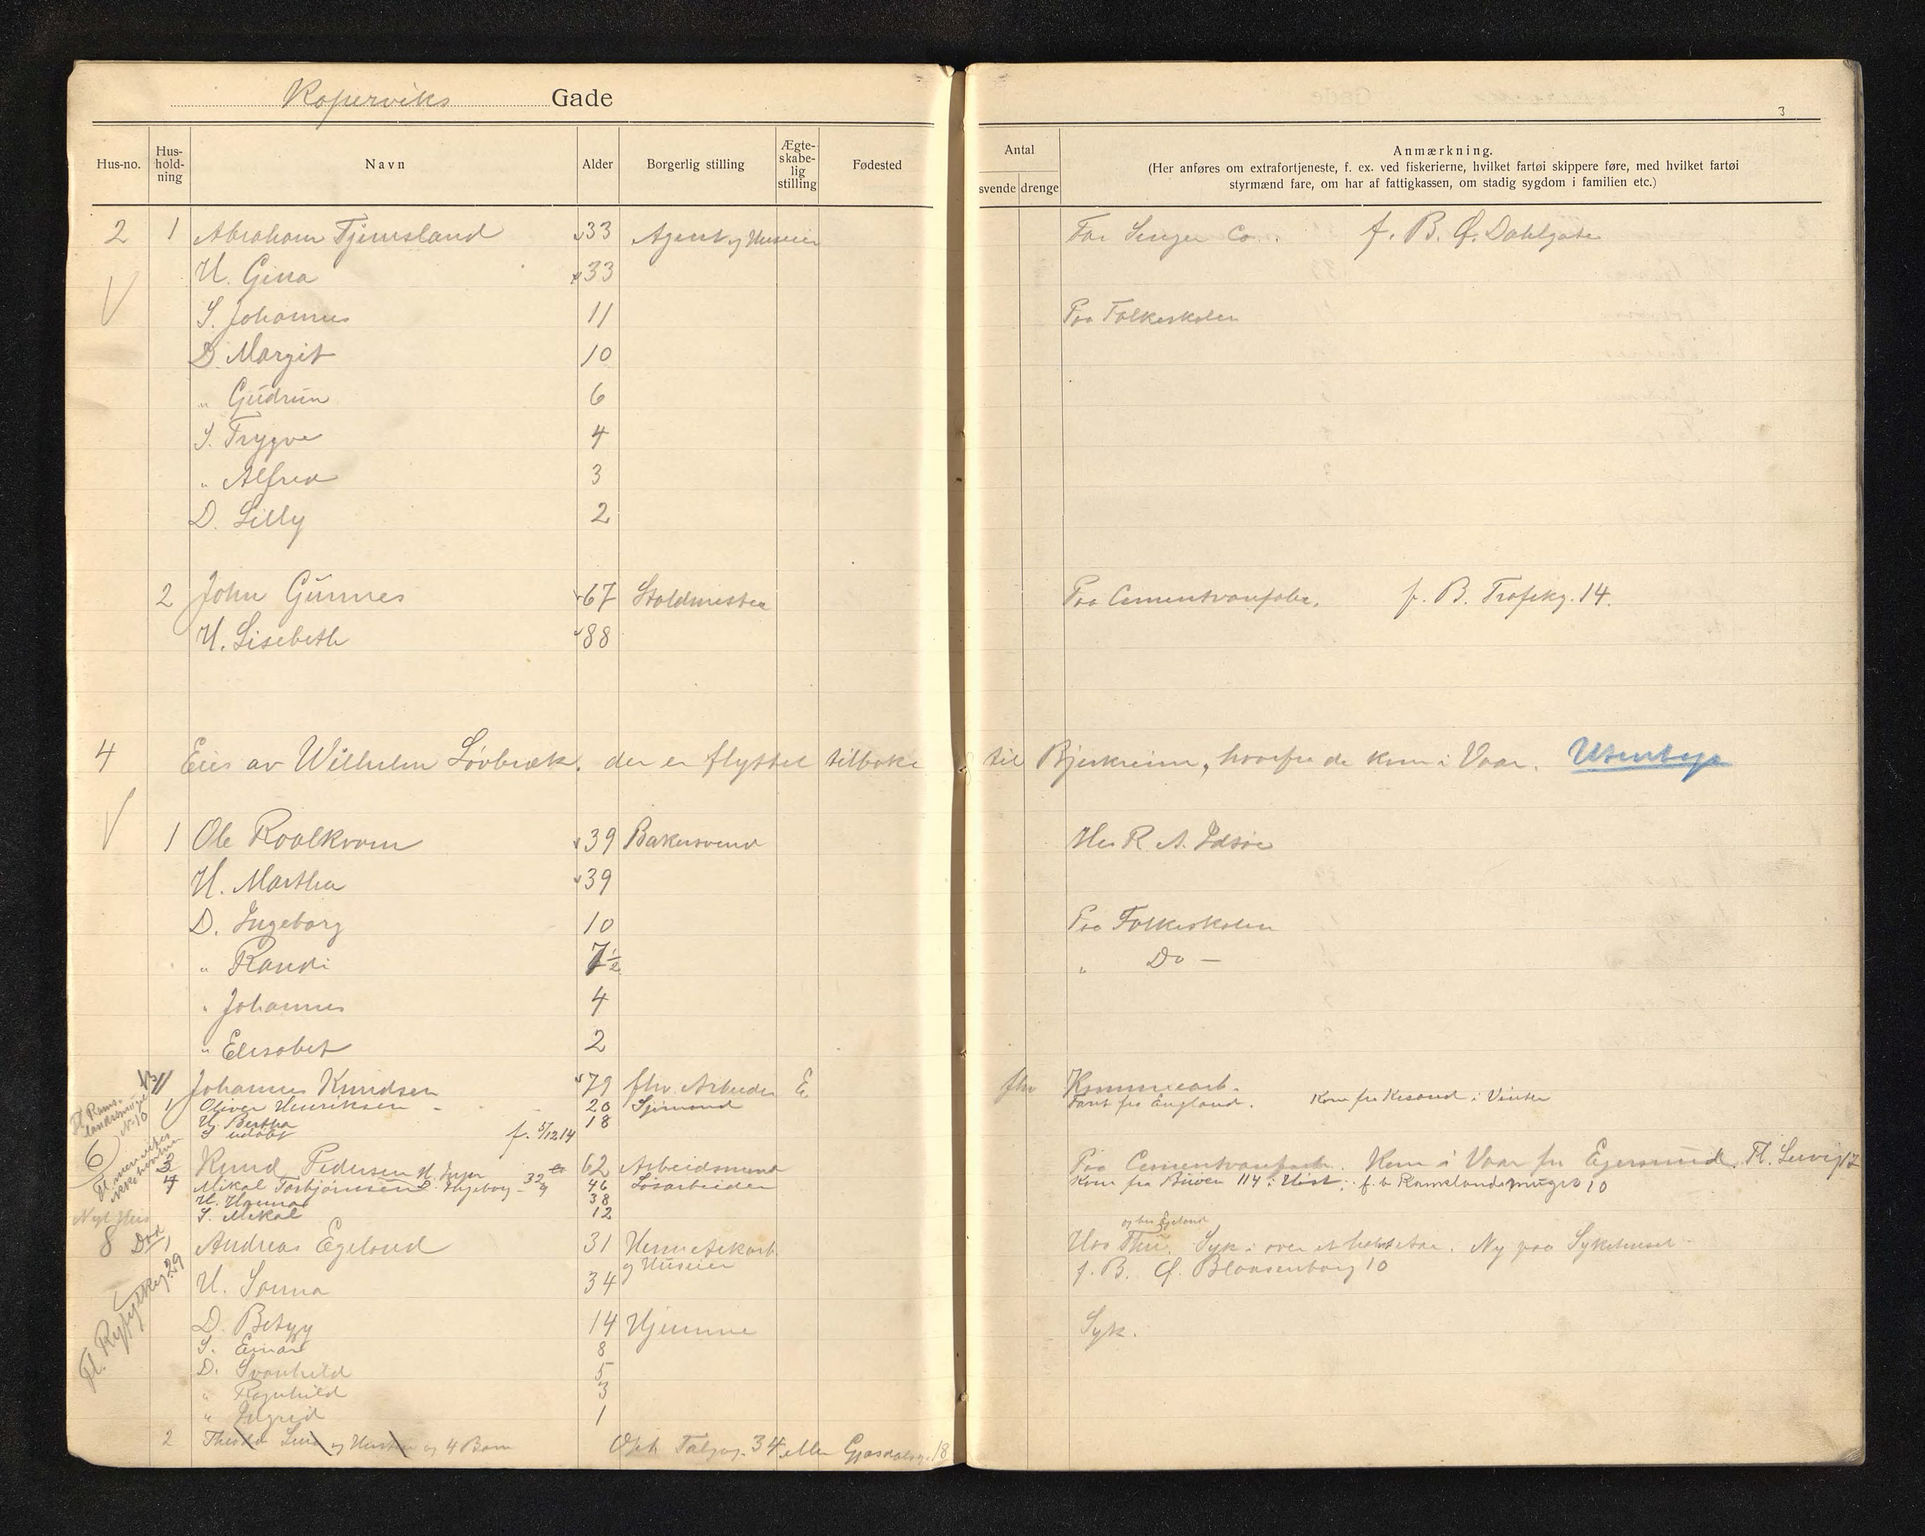 Koperviks Gade
3
Hus-no. Hus-hold-ning Navn Alder Borgerlig stilling Ægte-skabe-lig stilling Fødested Antal svende drenge Anmærkning.
(Her anføres om extrafortjeneste, f. ex. ved fiskerierne, hvilket fartøi skippere føre, med hvilket fartøi
styrmænd fare, om har af fattigkassen, om stadig sygdom i familien etc.)
2 1 Abraham Tjemsland 33 Agent og Huseier For Singer Co. f. B. Ø. Dahlgate
H. Gina 33
S. Johannes 11 Paa Folkeskolen
D. Margit 10
" Gudrun 6
S. Trygve 4
" Alfred 3
D. Lilly 2
2 John Gunnes 67 Staldmester Paa Cementvarefabr. f. B. 14.
H. Lisebeth 88
4 Eies av Wilhelm Løvbræk. der er flyttet tilbake til Bjerkreim, hvorfra de kom i Vaar. Utenbys
1 Ole Roalkvam 39 Bakersvend Hos R. A. Idsøe
H. Martha 39
D. Ingeborg 10 Paa Folkeskolen
" Randi 7½ " Do —
" Johannes 4
" Elisabet 2
Johannes Knudsen 79 fhv. Arbeider E fhv Kommunearb.
1 Oliver Henriksen 20 Sjømand Faret fra England. Kom fra i Vinter
H. Bertha 18
S udøbt f. 5/12 14
6 3 Knud Pedersen 62 Arbeidsmand Paa Cementvarefabr. Kom i Vaar fra Egersund. Fl.
4 Mikal Torbjørnsen 46 Løsarbeider Kom fra 114 i Høst. f. b. Ramslandsmuget 10
H. Hanna 38
S. Mikal 12
Nyt Hus
8 Død 1 Andreas Egeland 31 og Huseier Hos Thu. Syk i over et halvt Aar. Ny paa Sykehuset
og hus Egeland
f. B. Ø. Blaasenborg 10
H. Sanna 34
D. Betzy 14 Hjemme Syk.
S. Einar 8
D. Svanhild 5
" Ragnhild 3
" Ingrid 1
2 og Hustru og 4 Barn 34 eller Gjesdalsg. 18